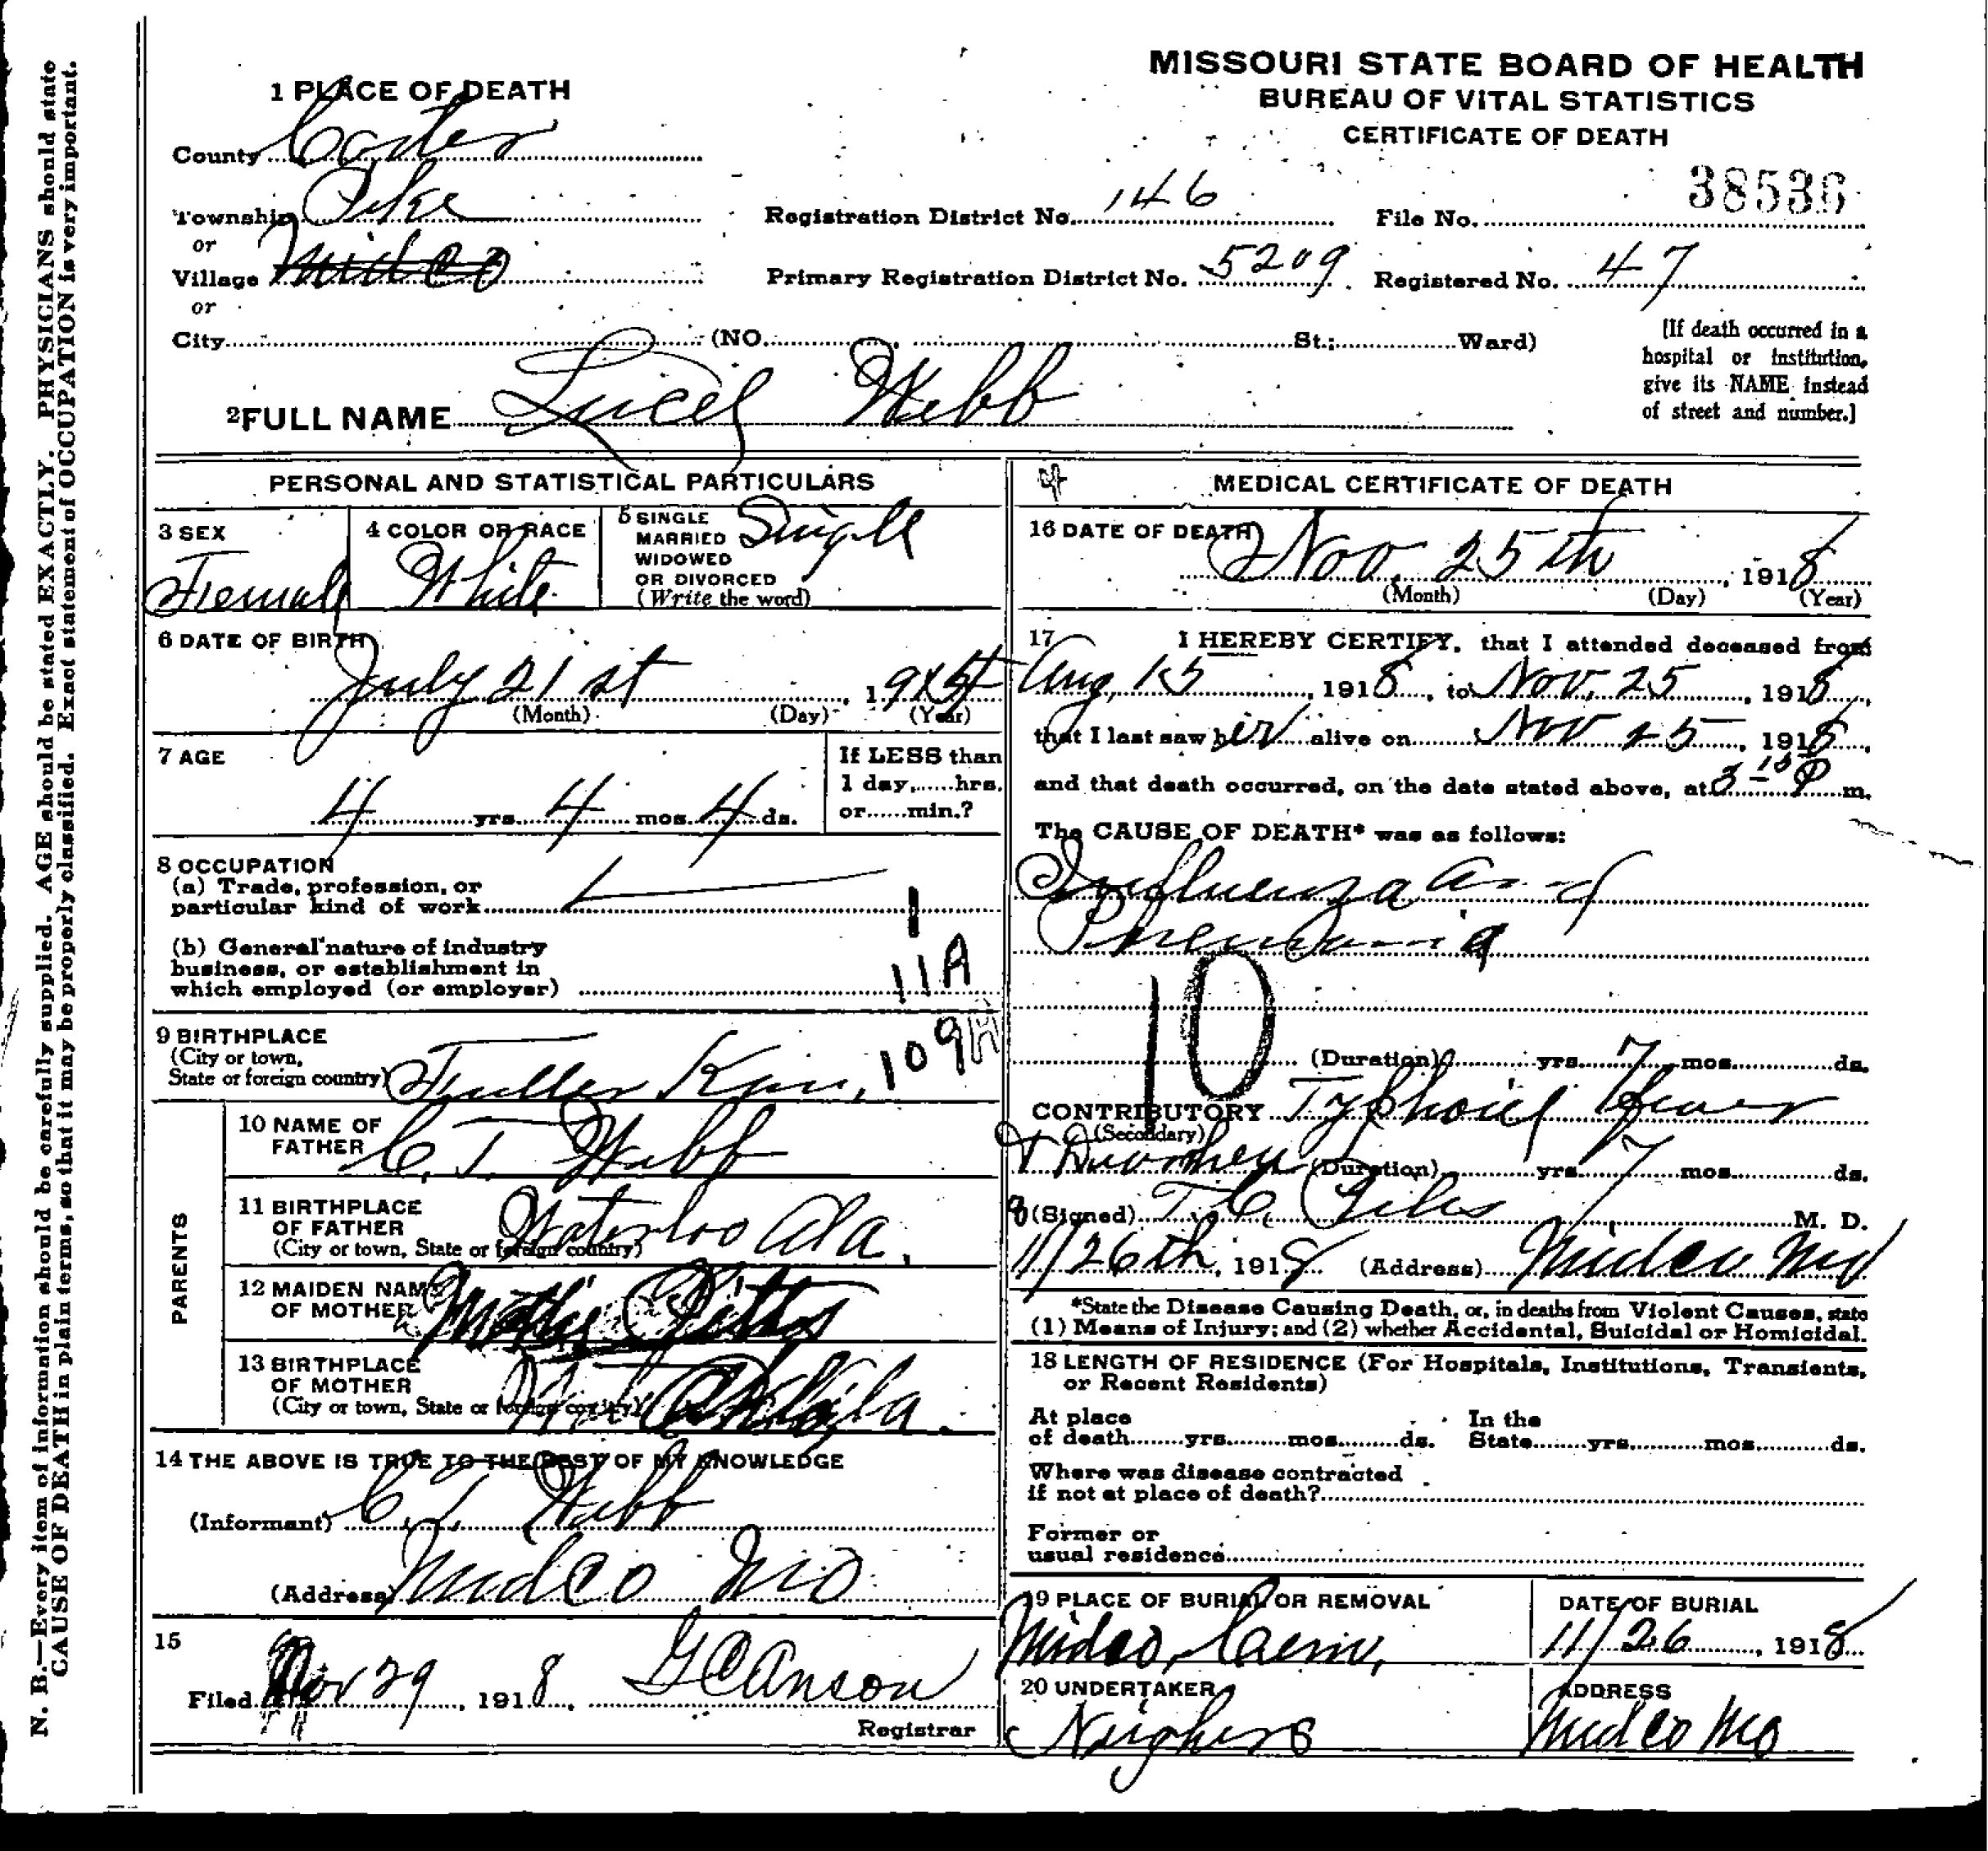 MISSOURI STATE BOARD OF HEALTH
BUREAU OF VITAL STATISTICS
CERTIFICATE OF DEATH
1 PLACE OF DEATH
County Carter
Township Pike
or
Village Midco
or
City (NO. St.; Ward)
Registration District No. 146 File No. 38536
Primary Registration District No. 5209 Registered No. 47
[If death occurred in a
hospital or institution,
give its NAME instead
of street and number.]
2 FULL NAME Lucy Webb
PERSONAL AND STATISTICAL PARTICULARS
3 SEX
Female
4 COLOR OR RACE
White
5 SINGLE
MARRIED
WIDOWED
OR DIVORCED
(Write the word)
Single
6 DATE OF BIRTH
July 21st, 1914
(Month) (Day) (Year)
7 AGE
4 yrs. 4 mos. 4 ds.
If LESS than
1 day, hrs.
or min.?
8 OCCUPATION
(a) Trade, profession, or
particular kind of work
(b) General nature of industry
business, or establishment in
which employed (or employer)
1
11A
109
9 BIRTHPLACE
(City or town,
State or foreign country) Fuller Kan,
PARENTS
10 NAME OF
FATHER C. T. Webb
11 BIRTHPLACE
OF FATHER
(City or town, State or foreign country) Waterloo Ala.
12 MAIDEN NAME
OF MOTHER
13 BIRTHPLACE
OF MOTHER
(City or town, State or foreign country) Ala.
14 THE ABOVE IS TRUE TO THE BEST OF MY KNOWLEDGE
(Informant) C. T. Webb
(Address) Midco Mo
15
Filed Nov 29, 1918, G C Anson
Registrar
MEDICAL CERTIFICATE OF DEATH
16 DATE OF DEATH
Nov. 25th, 1918
(Month) (Day) (Year)
17 I HEREBY CERTIFY, that I attended deceased from
Aug, 15, 1918, to Nov. 25, 1918,
that I last saw her alive on Nov 25, 1918,
and that death occurred, on the date stated above, at 3-10 P m.
The CAUSE OF DEATH* was as follows:
Influenza and
Pneumonia
10
(Duration) yrs. 7 mos. ds.
CONTRIBUTORY Typhoid fever
(Secondary)
(Duration) yrs. 7 mos. ds.
(Signed) T. C. Giles M. D.
11/26th, 1918 (Address) Midco Mo
*State the Disease Causing Death, or, in deaths from Violent Causes, state
(1) Means of Injury; and (2) whether Accidental, Suicidal or Homicidal.
18 LENGTH OF RESIDENCE (For Hospitals, Institutions, Transients,
or Recent Residents)
At place
of death yrs. mos. ds. In the
State yrs. mos. ds.
Where was disease contracted
if not at place of death?
Former or
usual residence
19 PLACE OF BURIAL OR REMOVAL
Midco, Cem,
DATE OF BURIAL
11/26, 1918
20 UNDERTAKER
ADDRESS
Midco Mo
N. B.—Every item of information should be carefully supplied. AGE should be stated EXACTLY. PHYSICIANS should state
CAUSE OF DEATH in plain terms, so that it may be properly classified. Exact statement of OCCUPATION is very important.